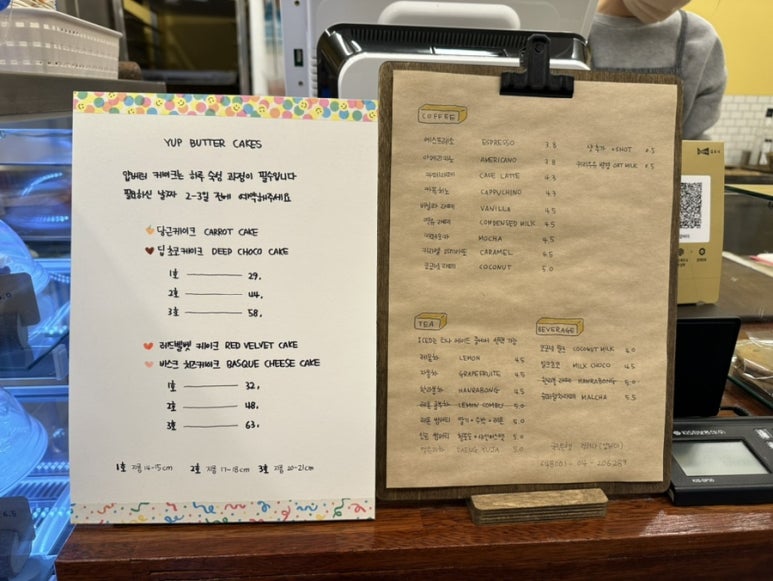 YUP BUTTER CAKES
압버터 케이크는 하루 숙성 과정이 필수입니다
필요하신 날짜 2-3일 전에 예약해주세요
당근케이크 CARROT CAKE
딥초코케이크 DEEP CHOCO CAKE
1호 29.
2호 44.
3호 58.
레드벨벳 케이크 RED VELVET CAKE
바스크 치즈케이크 BASQUE CHEESE CAKE
1호 32.
2호 48.
3호 63.
1호 지름 14-15cm 2호 지름 17-18cm 3호 지름 20-21cm
COFFEE
에스프레소 ESPRESSO 3.8
아메리카노 AMERICANO 3.8
카페라떼 CAFE LATTE 4.3
카푸치노 CAPPUCHINO 4.3
바닐라 라떼 VANILLA 4.5
연유 라떼 CONDENSED MILK 4.5
카페모카 MOCHA 4.5
CARAMEL 4.5
코코넛 라떼 COCONUT 5.0
샷 추가 +SHOT 0.5
귀리우유 변경 OAT MILK 0.5
TEA
레몬차 LEMON 4.5
자몽차 GRAPEFRUITE 4.5
한라봉차 HANRABONG 4.5
레몬 콤부차 LEMON COMBU 5.0
5.0
5.0
DAENG YUJA 5.0
BEVERAGE
코코넛 밀크 COCONUT MILK 5.0
밀크초코 MILK CHOCO 4.5
한라봉 HANRABONG 5.0
MALCHA 5.5